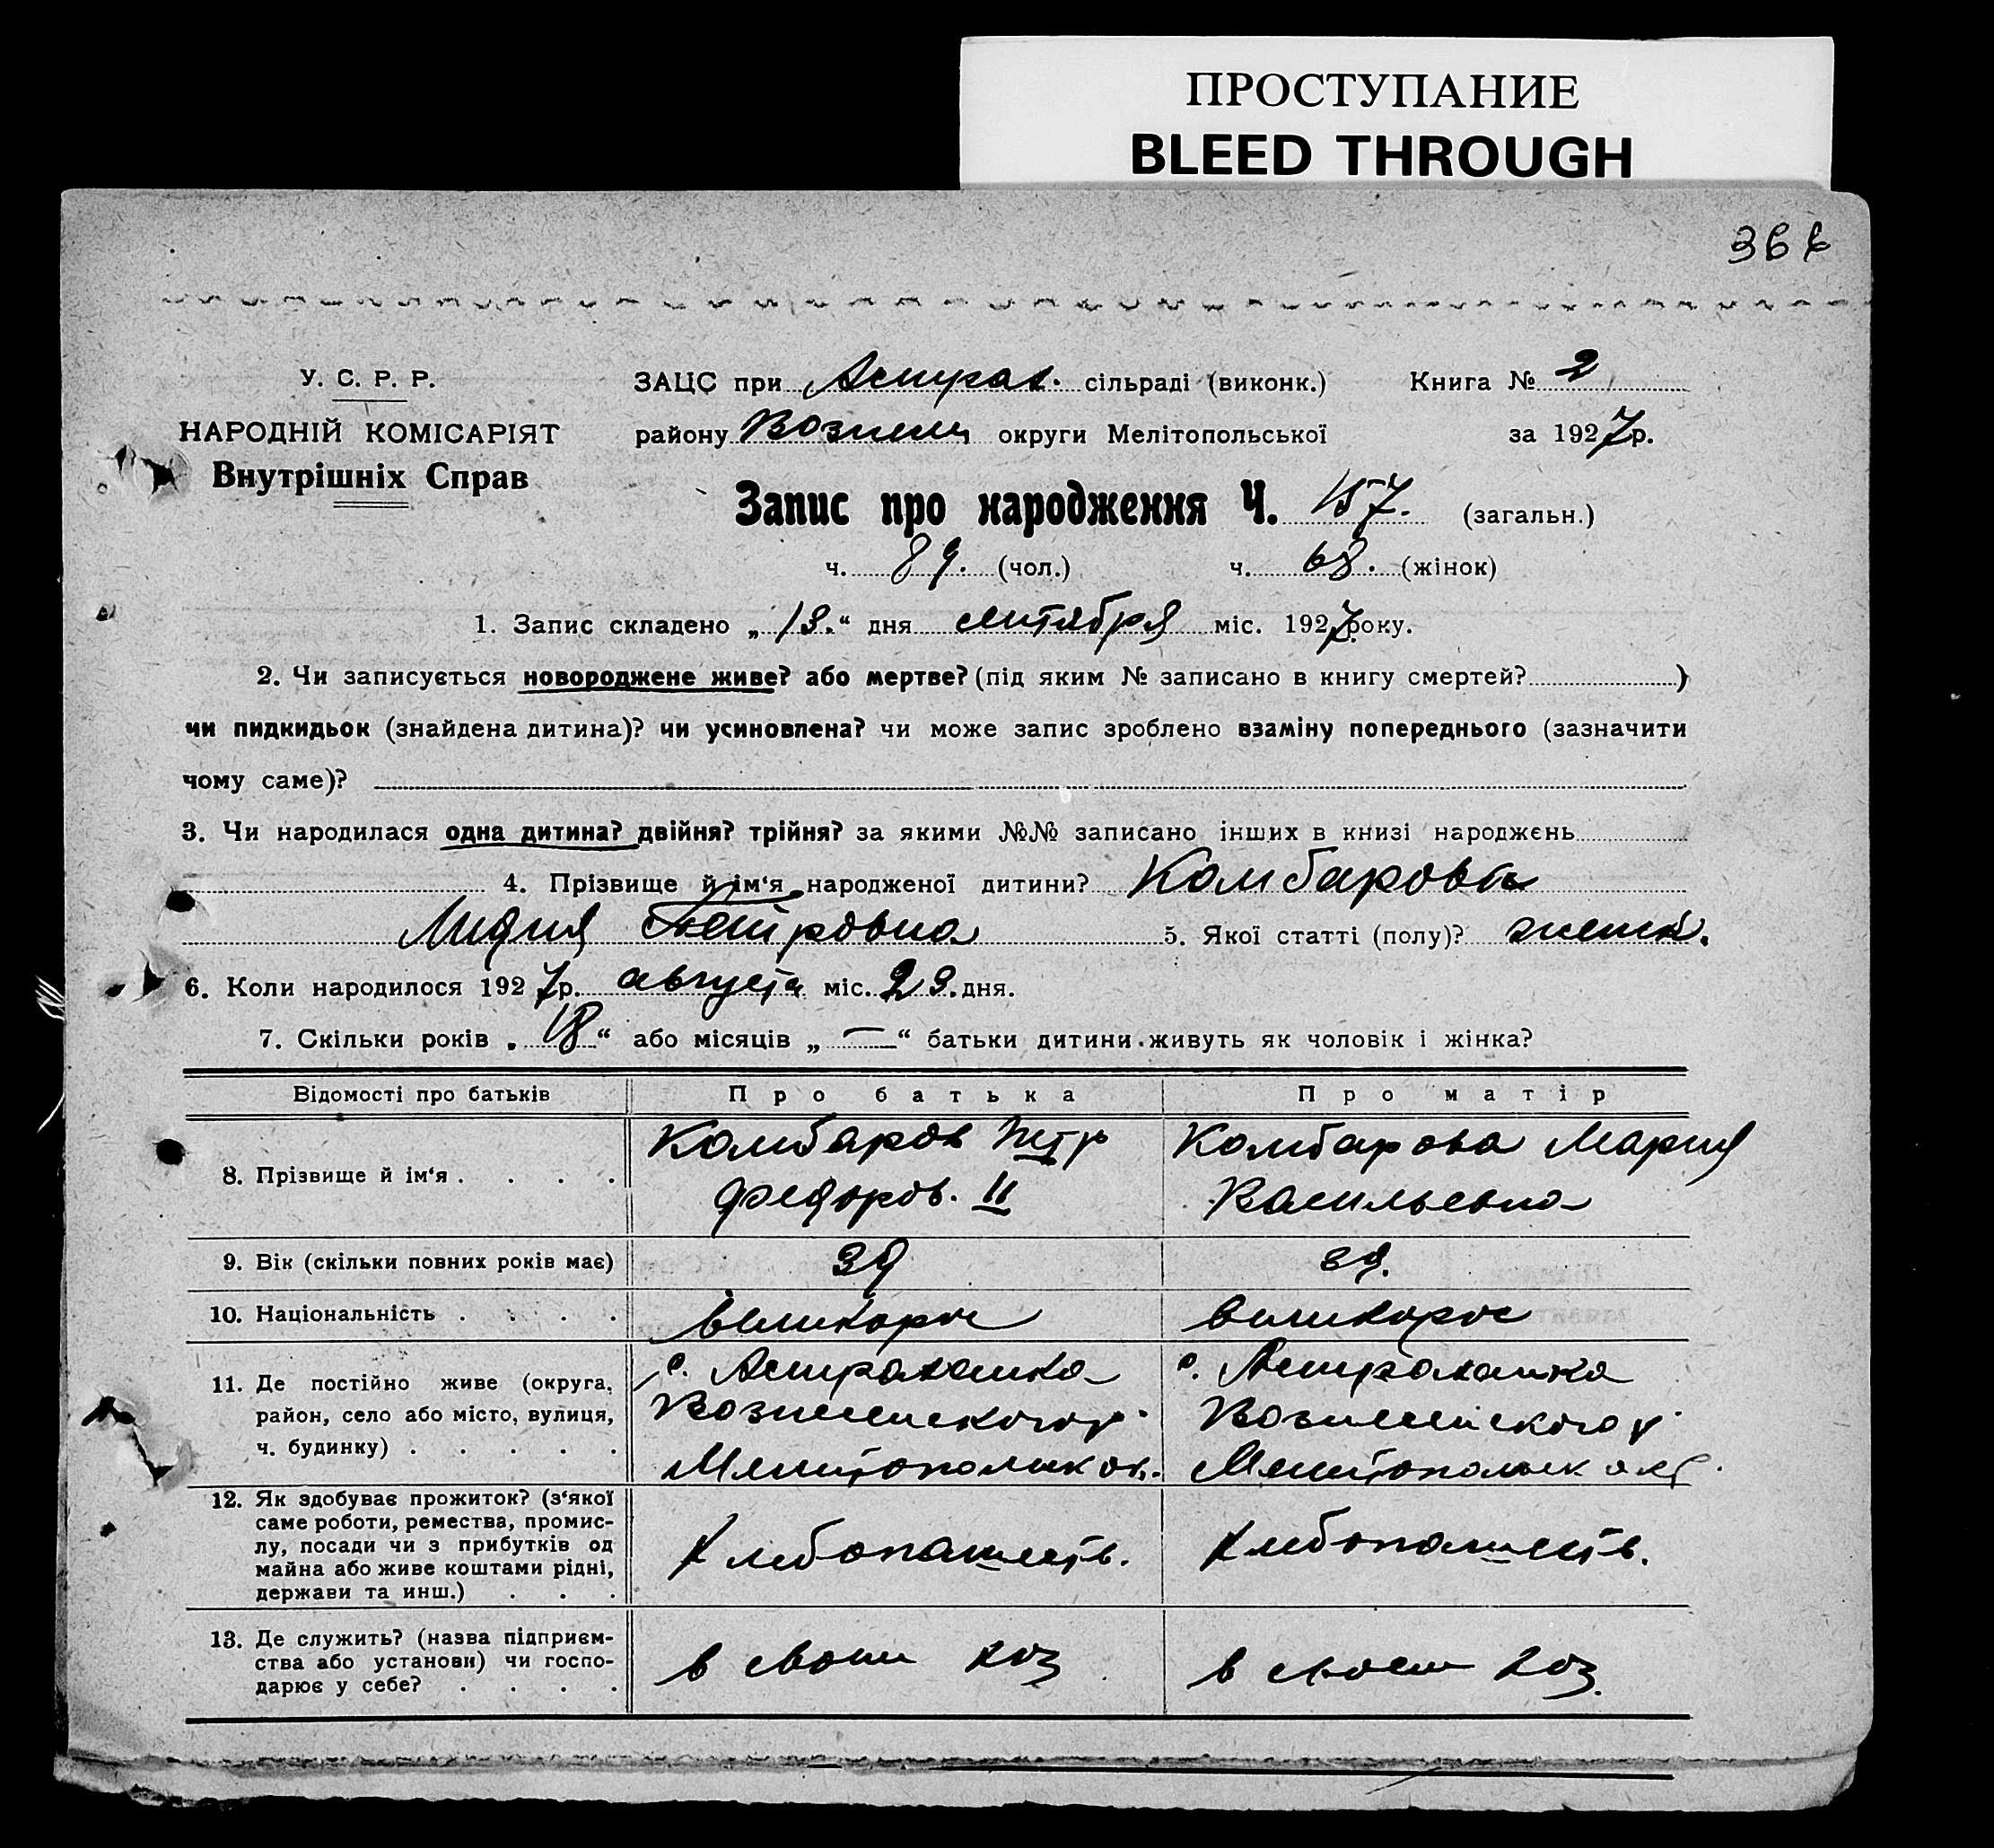 ПРОСТУПАНИЕ
BLEED THROUGH
У. С. Р. Р.
НАРОДНІЙ КОМІСАРІЯТ
Внутрішніх Справ
ЗАЦС при Астрах. сільраді (виконк.) Книга № 2
району Вознесен округи Мелітопольської за 1927р.
Запис про народження Ч. 157. (загальн.)
ч. 89. (чол.) ч. 68. (жінок)
1. Запис складено „13.“ дня сентября міс. 1927 року.
2. Чи записується новороджене живе? або мертве? (під яким № записано в книгу смертей? )
чи пидкидьок (знайдена дитина)? чи усиновлена? чи може запис зроблено взаміну попереднього (зазначити
чому саме)?
3. Чи народилася одна дитина? двійня? трійня? за якими №№ записано інших в книзі народжень
4. Прізвище й ім‘я народженої дитини? Комбарова
Лидия Петровна 5. Якої статті (полу)? женск.
6. Коли народилося 1927р. августа міс. 29. дня.
7. Скільки років „18“ або місяців „—“ батьки дитини живуть як чоловік і жінка?
Відомості про батьків Про батька Про матір
8. Прізвище й ім‘я . . . . Комбаров Петр Комбарова Мария
Федоров. II Васильевна
9. Вік (скільки повних років має) 39 39.
10. Національність . . . . великорос великорос
11. Де постійно живе (округа, с. Астраханка с. Астраханка
район, село або місто, вулиця, Вознесенского р. Вознесенского р.
ч. будинку) . . . . . Мелитопольск ок. Мелитопольск окр.
12. Як здобуває прожиток? (з‘якої
саме роботи, ремества, промис-
лу, посади чи з прибутків од
майна або живе коштами рідні, хлебопашеств. хлебопашеств.
держави та инш.) . . .
13. Де служить? (назва підприєм-
ства або установи) чи госпо- в своем хоз в своем хоз.
дарює у себе? . . . .